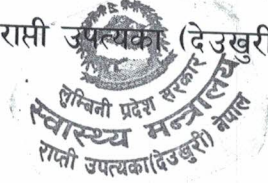 राप्ती उपत्यका (देउखुरी
लुम्बिनी प्रदेश सरकार
स्वास्थ्य मन्त्रालय
राप्ती उपत्यका(देउखुरी) नेपाल